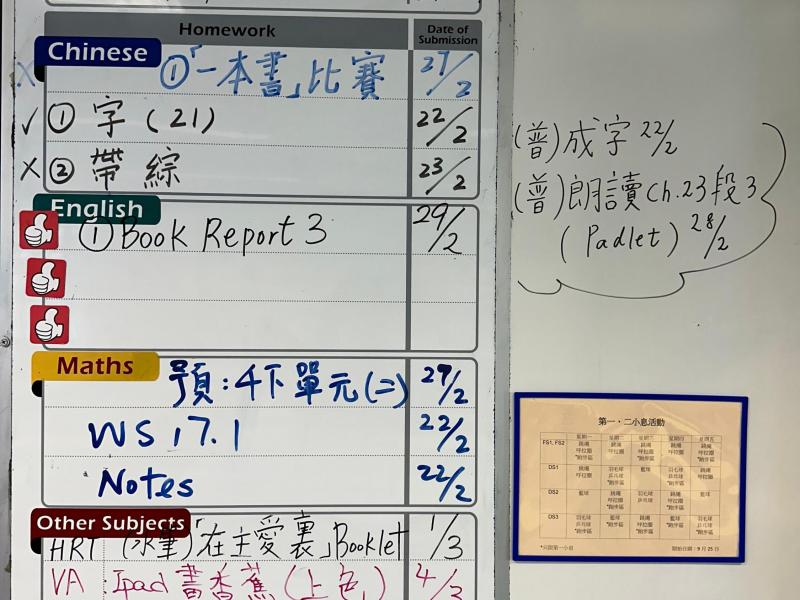 Homework
Date of Submission
Chinese
①「一本書」比賽 27/2
✓ ① 字(21) 22/2
X ② 帶綜 23/2
English
① Book Report 3 29/2
Maths
預:4下單元(二) 27/2
WS 17.1 22/2
Notes 22/2
Other Subjects
HRT (水筆)「在主愛裏」Booklet 1/3
VA : Ipad 畫香蕉(上色) 4/3
(普)成字 22/2
(普)朗讀 Ch.23段3
(Padlet) 28/2
第一、二小息活動
星期一 星期二 星期三 星期四 星期五
FS1, FS2
DS1
DS2
DS3
開始日期:9月25日